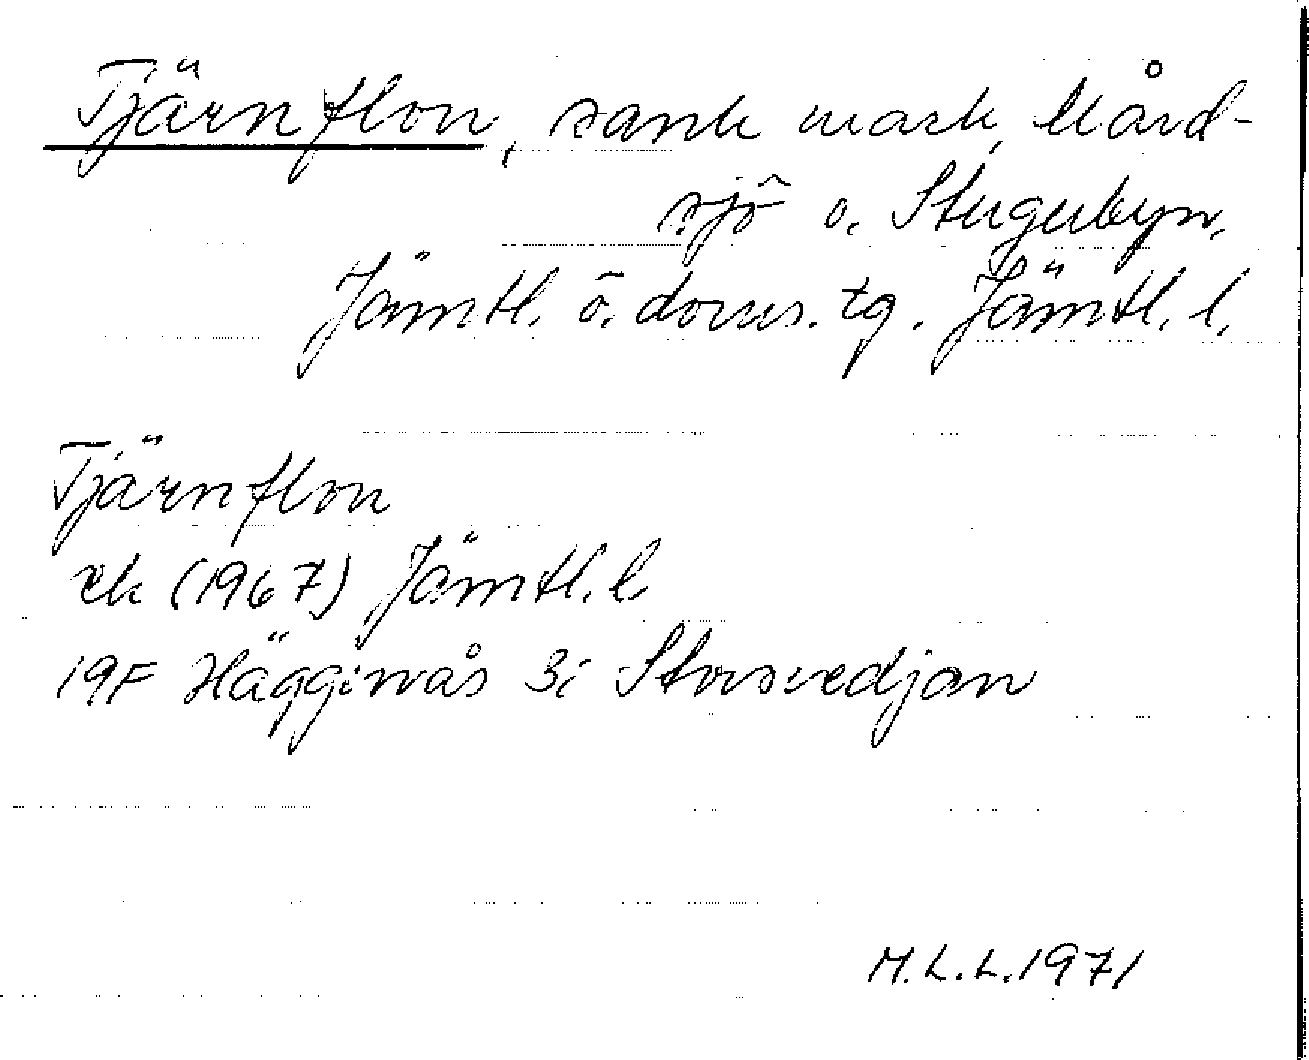 Tjärnflon, sank mark, Mård-
sjö o. Stugubyn,
Jämtl. ö. doms. tg. Jämtl. l.
Tjärnflon
ek (1967) Jämtl. l
19F Häggenås 3i Storsvedjan
M.L.L. 1971